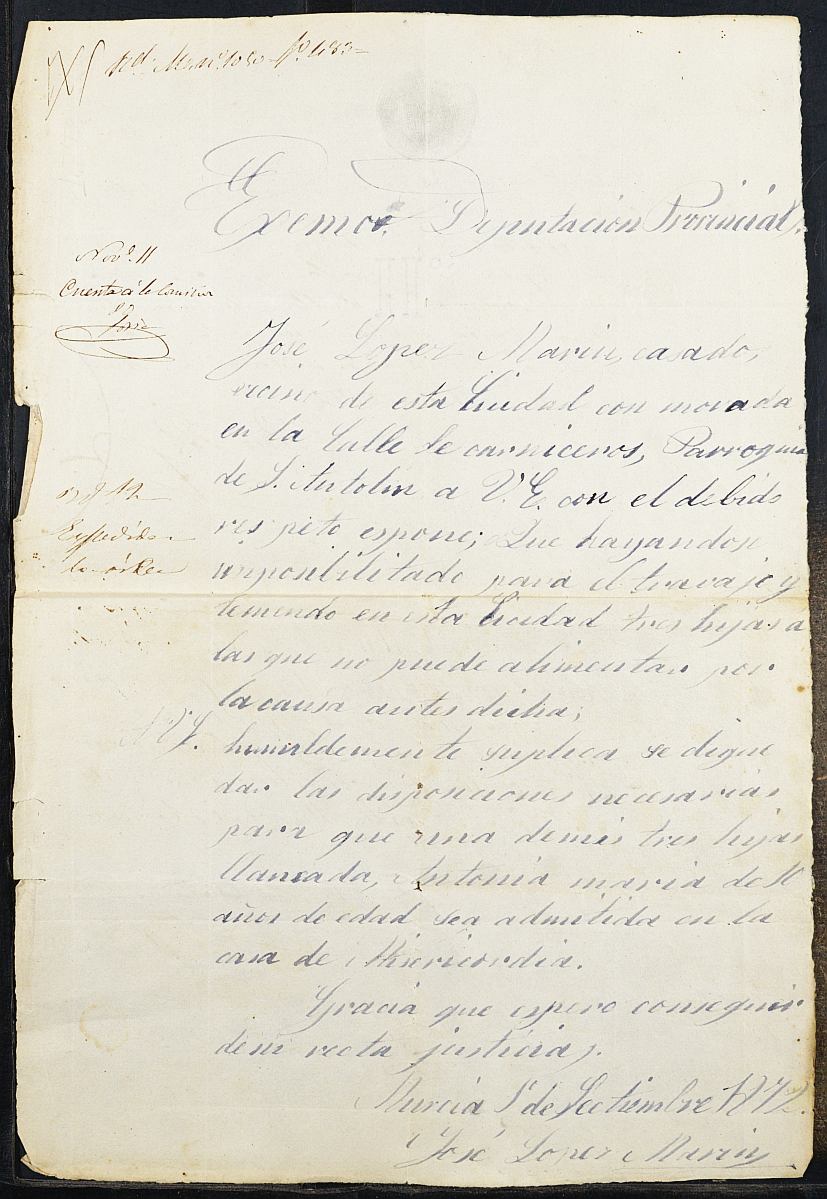 Exemoe. Diputacion Provincial.
Nov.e 11
Cuenta á la Comision
José Lopez Marin, casado,
vecino de esta Ciudad con morada
en la Calle de carniceros, Parroquia
de S. Antolin a V.E. con el debido
respeto espone; Que hayandose
imposibilitado para el travajo y
teniendo en esta Ciudad tres hijas a
las que no puede alimentar por
la causa antes dicha;
Expedida
la órden
A V.E. humildemente suplica se digne
dar las disposiciones necesarias
para que una demis tres hijas
llamada, Antonia maria de 10
años de edad sea admitida en la
casa de Misericordia.
Gracia que espero conseguir
de su recta justicia.
Murcia 1º de Sectiembre 1872.
José Lopez Marin